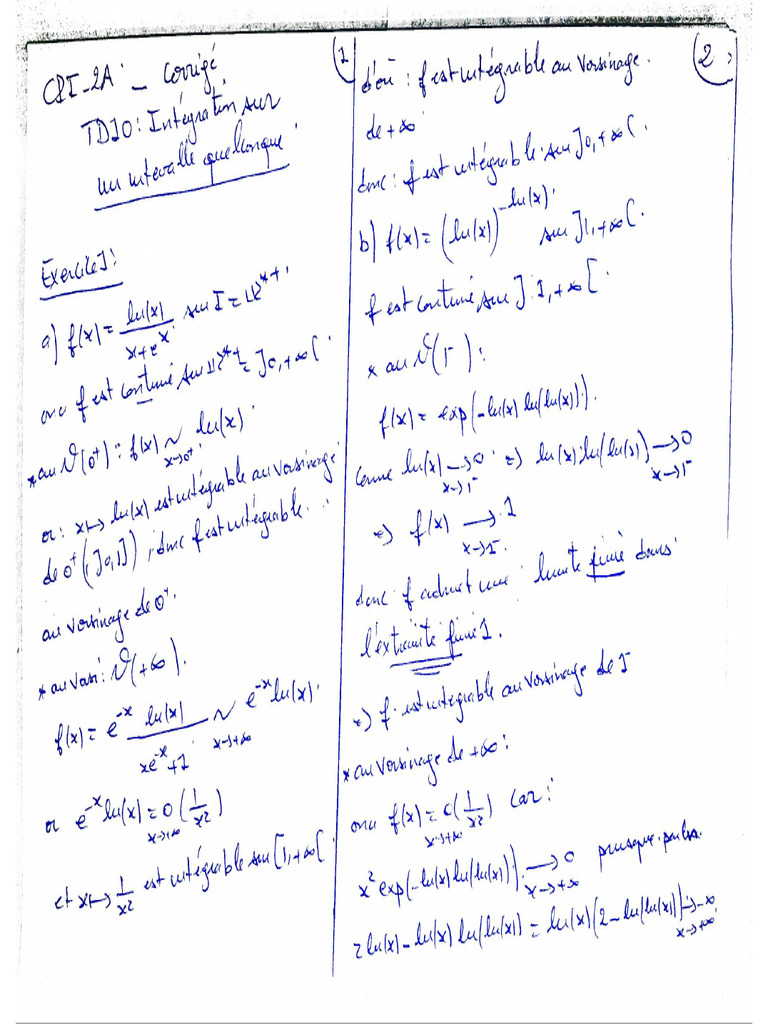 1
CPI-2A - Corrigé
TD10: Intégration sur
un intervalle quelconque :
Exercice 1:
a) f(x) = ln(x)/(x+e^x) sur I = ℝ*+.
ona f est continue sur ℝ*+ = ]0,+∞[.
* au V(0+) : f(x) ~_{x→0+} ln(x).
or: x ↦ ln(x) est intégrable au voisinage
de 0+ (]0,1]) ; donc f est intégrable
au voisinage de 0+.
* au V(+∞).
f(x) = e^{-x} ln(x)/(xe^{-x}+1) ~_{x→+∞} e^{-x} ln(x).
or e^{-x} ln(x) =_{x→+∞} o(1/x²)
et x ↦ 1/x² est intégrable sur [1,+∞[.
2
d'où : f est intégrable au voisinage
de +∞
donc : f est intégrable sur ]0,+∞[.
b) f(x) = (ln(x))^{-ln(x)} sur ]1,+∞[.
f est continue sur ]1,+∞[.
* au V(1-) :
f(x) = exp(-ln(x) ln(ln(x))).
Comme ln(x) →_{x→1-} 0 ⇒ ln(x) ln(ln(x)) →_{x→1-} 0
⇒ f(x) →_{x→1-} 1
donc f admet une limite finie dans
l'extrimité finie 1.
⇒ f est intégrable au voisinage de 1
* au voisinage de +∞ :
ona f(x) =_{x→+∞} o(1/x²) car :
x² exp(-ln(x) ln(ln(x))) →_{x→+∞} 0 puisque
2ln(x) - ln(x) ln(ln(x)) = ln(x)(2 - ln(ln(x))) →_{x→+∞} -∞